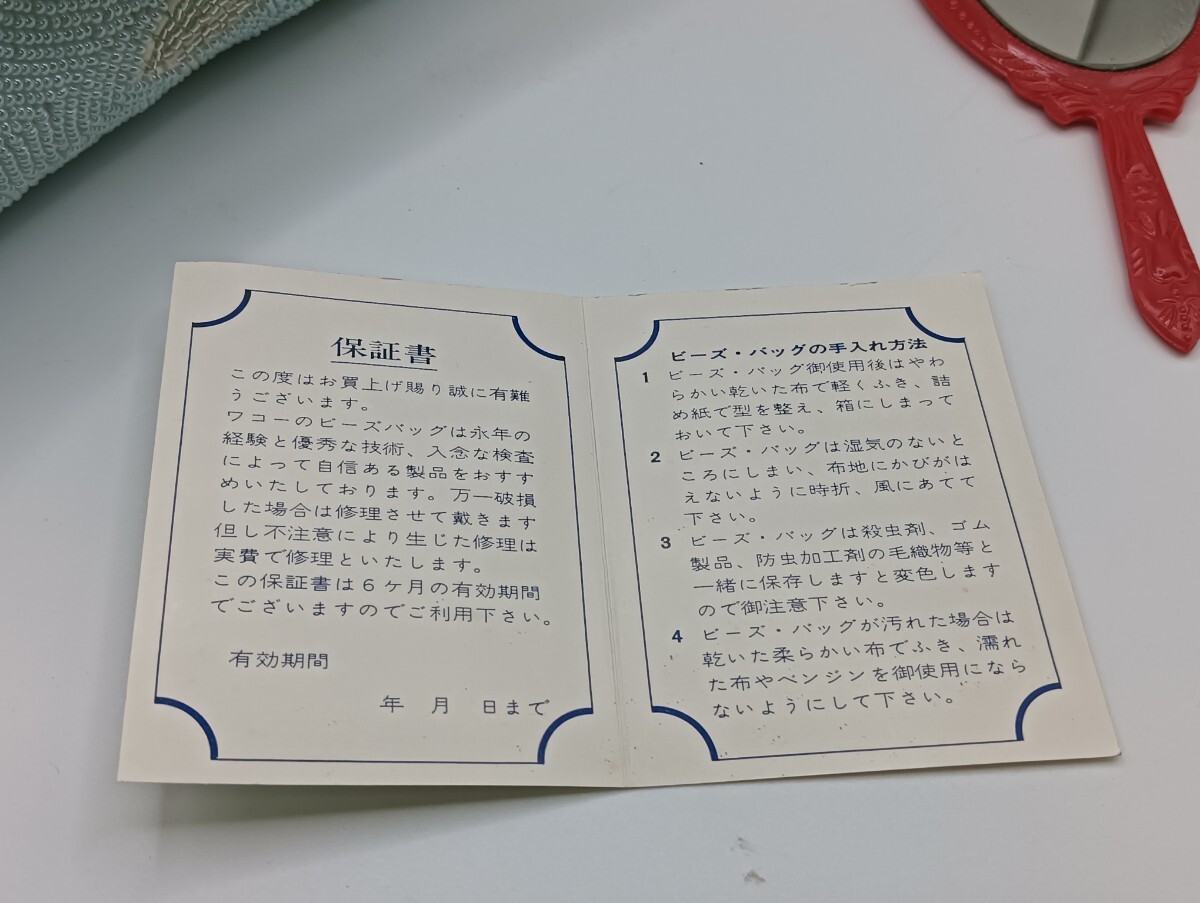 保証書
この度はお買上げ賜り誠に有難
うございます。
ワコーのビーズバッグは永年の
経験と優秀な技術、入念な検査
によって自信ある製品をおすす
めいたしております。万一破損
した場合は修理させて戴きます
但し不注意により生じた修理は
実費で修理といたします。
この保証書は6ケ月の有効期間
でございますのでご利用下さい。
有効期間
年 月 日まで
ビーズ・バッグの手入れ方法
1 ビーズ・バッグ御使用後はやわ
らかい乾いた布で軽くふき、詰
め紙で型を整え、箱にしまって
おいて下さい。
2 ビーズ・バッグは湿気のないと
ころにしまい、布地にかびがは
えないように時折、風にあてて
下さい。
3 ビーズ・バッグは殺虫剤、ゴム
製品、防虫加工剤の毛織物等と
一緒に保存しますと変色します
ので御注意下さい。
4 ビーズ・バッグが汚れた場合は
乾いた柔らかい布でふき、濡れ
た布やベンジンを御使用になら
ないようにして下さい。